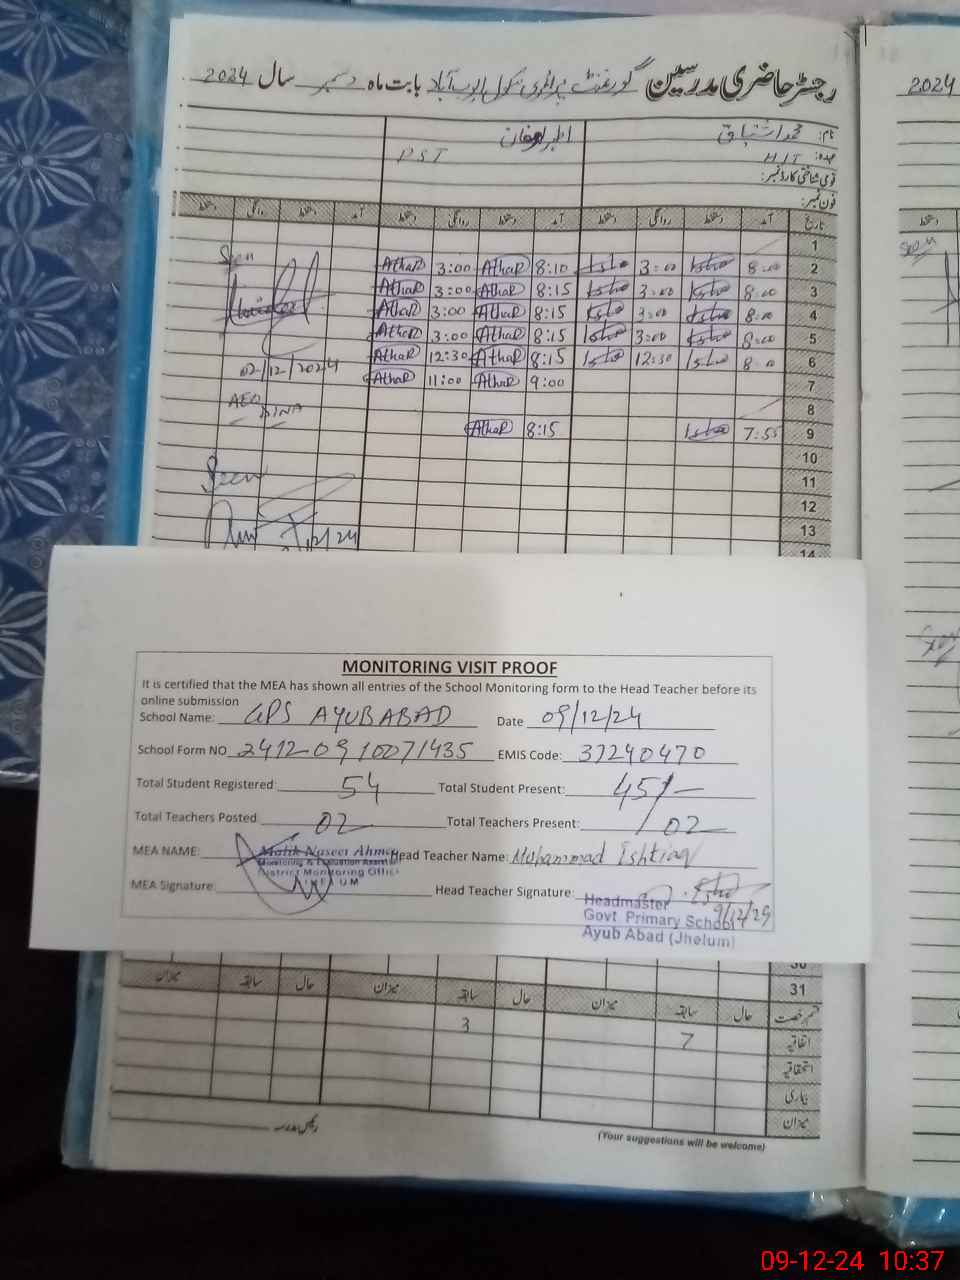 رجسٹر حاضری مدرسین گورنمنٹ پرائمری سکول ایوب آباد بابت ماہ دسمبر سال 2024
2024
نام: محمد اشتیاق
عہدہ: PST
قومی شناختی کارڈ نمبر:
فون نمبر:
تاریخ آمد دستخط روانگی دستخط آمد دستخط روانگی دستخط آمد دستخط روانگی دستخط
1
2 8:00 3:00 8:10 Athar 3:00 Athar
3 8:00 3:00 8:15 Athar 3:00 Athar
4 8:00 3:00 8:15 Athar 3:00 Athar
5 8:00 3:00 8:15 Athar 3:00 Athar
6 8:00 12:30 8:15 Athar 12:30 Athar
7 9:00 Athar 11:00 Athar
8
9 7:55 8:15 Athar
10
11
12
13
14
Seen
02/12/2024
AEO
Seen
Seen
MONITORING VISIT PROOF
It is certified that the MEA has shown all entries of the School Monitoring form to the Head Teacher before its
online submission
School Name: GPS AYUBABAD Date 09/12/24
School Form NO 2412-0910071435 EMIS Code: 37240470
Total Student Registered: 54 Total Student Present: 45/-
Total Teachers Posted 02 Total Teachers Present: 02
MEA NAME: Malik Naseer Ahmed Head Teacher Name: Muhammad Ishtiaq
Monitoring & Evaluation Assistant
District Monitoring Officer
MEA Signature: Head Teacher Signature:
9/12/24
Headmaster
Govt. Primary School
Ayub Abad (Jhelum)
30
31
قسم رخصت حال سابقہ میزان حال سابقہ میزان حال سابقہ میزان
اتفاقیہ 7 3
استحقاقیہ
بیماری
میزان
رئیس مدرسہ
(Your suggestions will be welcome)
09-12-24 10:37